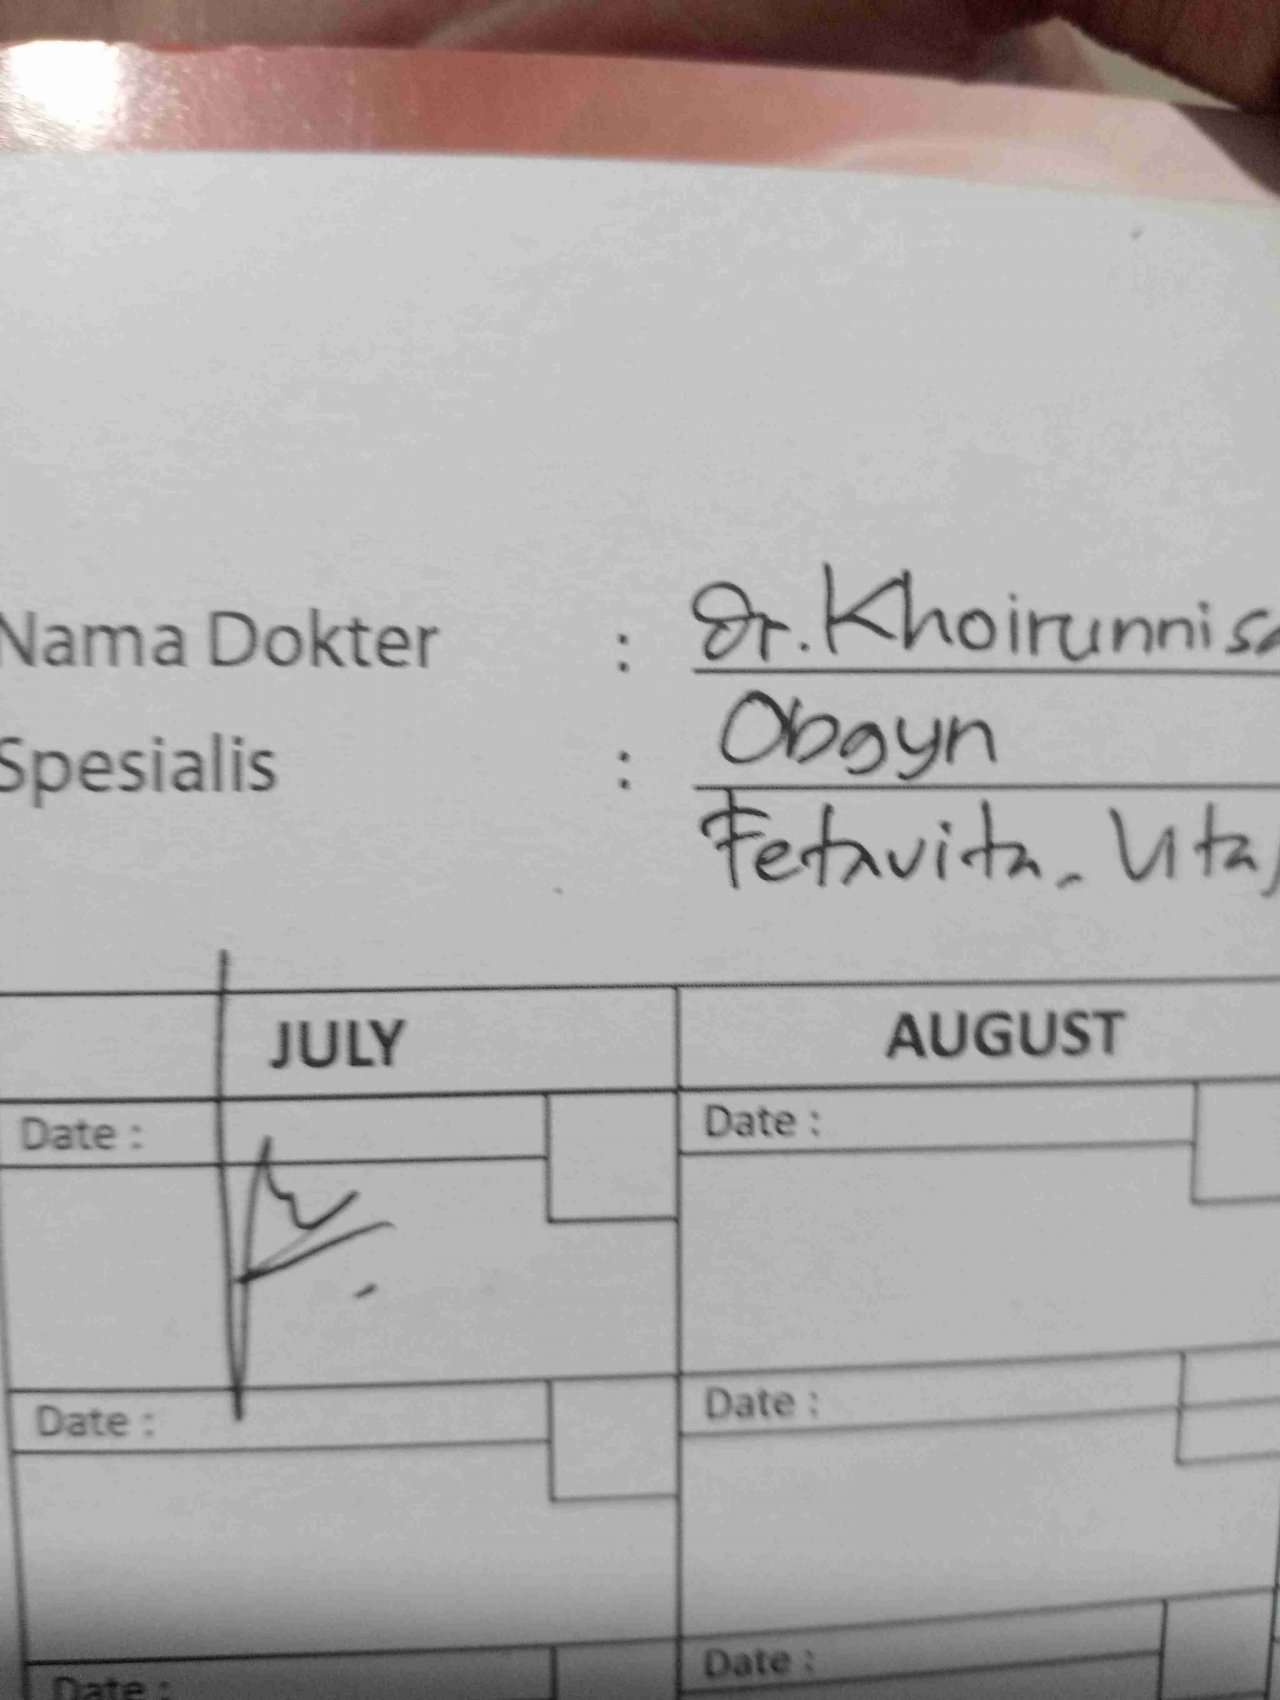 Nama Dokter : Dr. Khoirunnisa
Spesialis : Obgyn
Fetavita - Uta
JULY AUGUST
Date : Date :
Date : Date :
Date : Date :